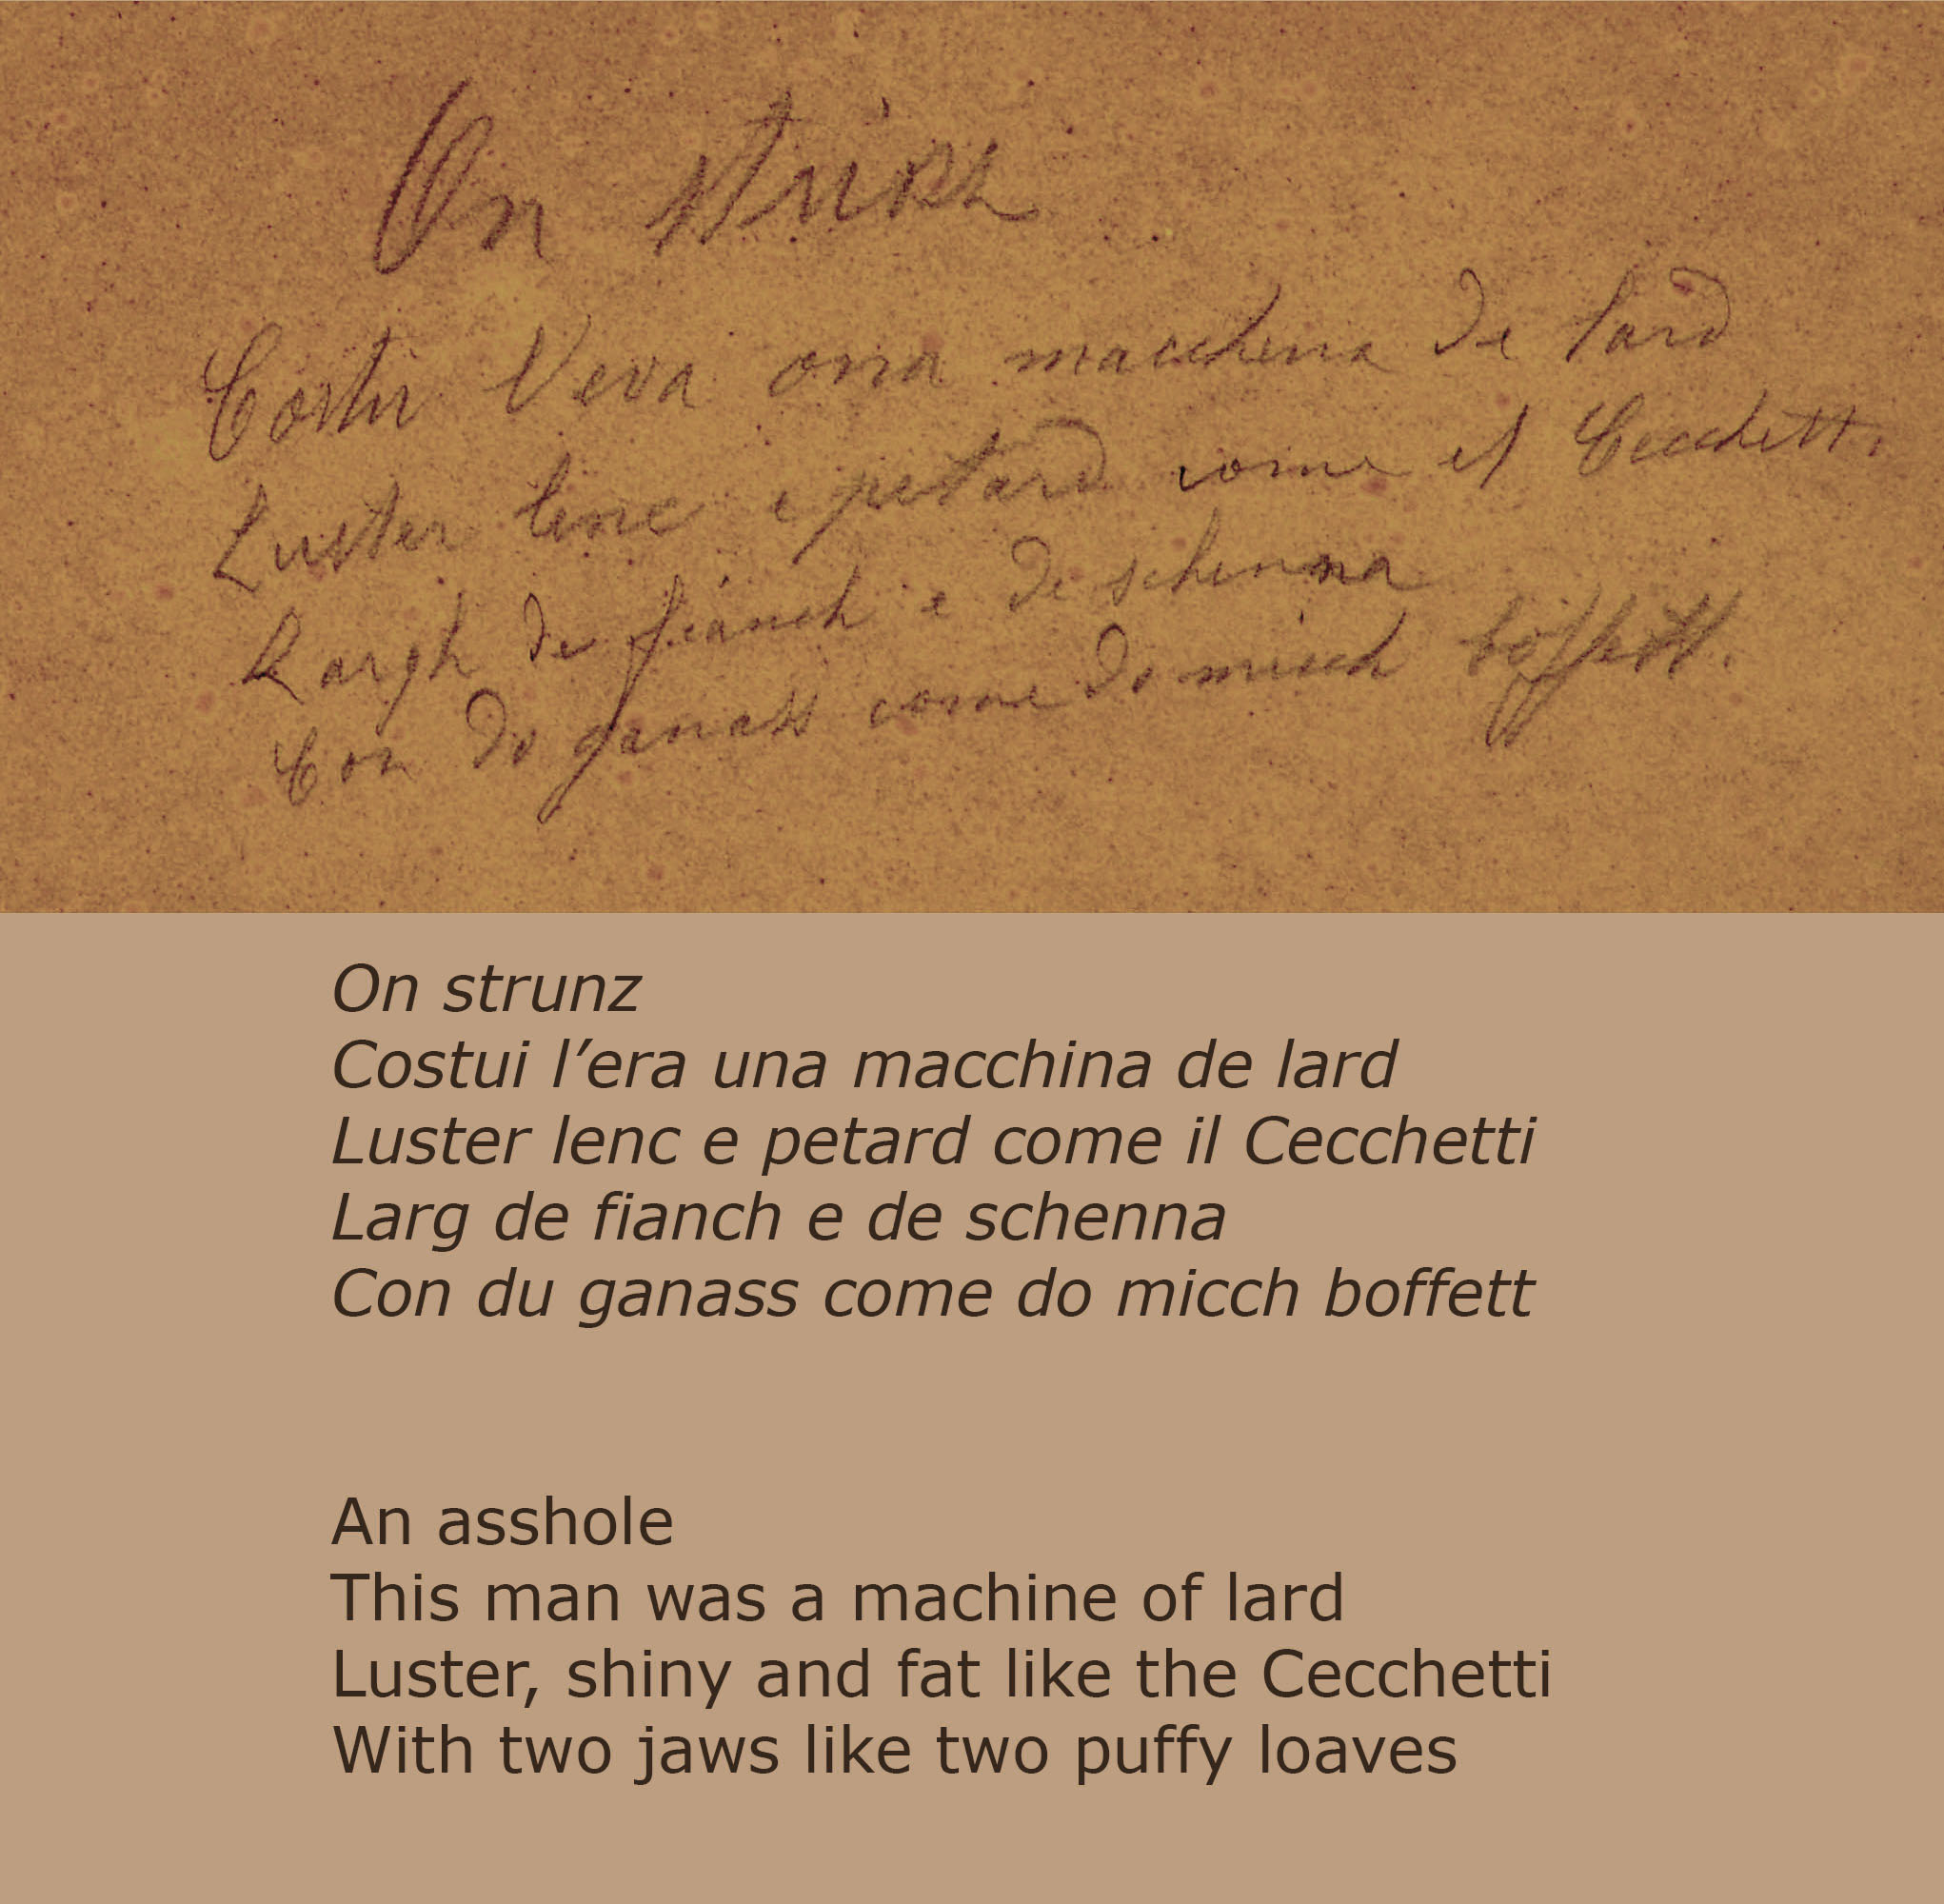 On strunz
Costu l'era ona macchena de lard
Luster lenc e petard come el Cecchett.
Largh de fianch e de schenna
Con do ganass come do micch boffett.
On strunz
Costui l’era una macchina de lard
Luster lenc e petard come il Cecchetti
Larg de fianch e de schenna
Con du ganass come do micch boffett
An asshole
This man was a machine of lard
Luster, shiny and fat like the Cecchetti
With two jaws like two puffy loaves